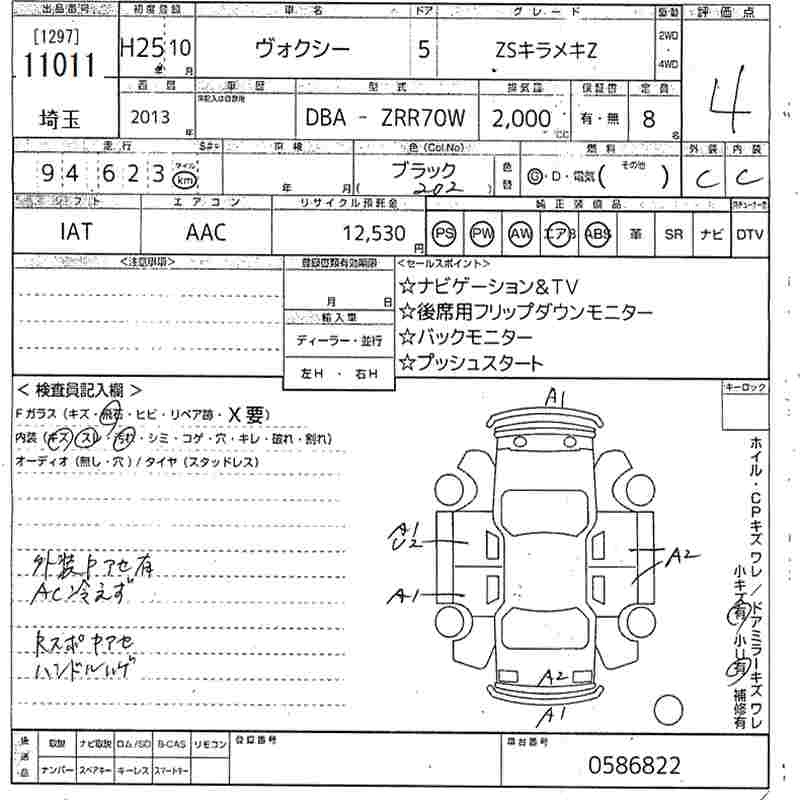 出品番号 初度登録 車名 ドア グレード 駆動 評価点
[1297]
11011 H25 10 ヴォクシー 5 ZSキラメキZ 2WD・4WD 4
年 月
西暦 車歴 型式 排気量 保証書 定員
埼玉 2013 年 DBA - ZRR70W 2,000 cc 有・無 8 名
走行 S#* 車検 色(Col.No) 燃料 外装 内装
94 623 マイル km 年 月 ブラック 202 色替 G・D・電気( その他 ) C C
シフト エアコン リサイクル預託金 純正装備品
IAT AAC 12,530 円 PS PW AW エアB ABS 革 SR ナビ DTV
<注意事項> 登録書類有効期限 <セールスポイント>
月 日
☆ナビゲーション&TV
☆後席用フリップダウンモニター
☆バックモニター
☆プッシュスタート
輸入車
ディーラー・並行
左H・右H
<検査員記入欄> キーロック
Fガラス(キズ・飛石・ヒビ・リペア跡・X要)
内装(キズ・スレ・汚れ・シミ・コゲ・穴・キレ・破れ・割れ)
オーディオ(無し・穴)/タイヤ(スタッドレス)
外装中アセ有
AC冷えず
Rスポ中アセ
ハンドルハゲ
A1
A1
U2
A2
A1
A2
A1
ホイル・CPキズワレ/ドアミラーキズワレ
小キズ有・小U有・補修有
後送品 取説 ナビ取説 ロム/SD B-CAS リモコン 登録番号 車台番号
ナンバー スペアキー キーレス スマートキー 0586822